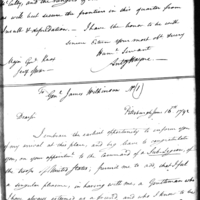 as will best secure the frontiers in this quarter from
Insult & depredation — I have the honor to be with
sincere Esteem your most obt. &
Humle Servant
Anty Wayne
To Genl. James Wilkinson No (1)
Pittsburgh June 16th 1792
Dear Sir
I embrace the earliest opportunity to inform you
of my arrival at this place, and beg leave to congratulate
you, on your appointmt. to the Command of a
of the troops of United States, permit me to add, that I feel
a singular pleasure, in having with me a Gentleman who
I have always esteemed as a friend and who I know to be